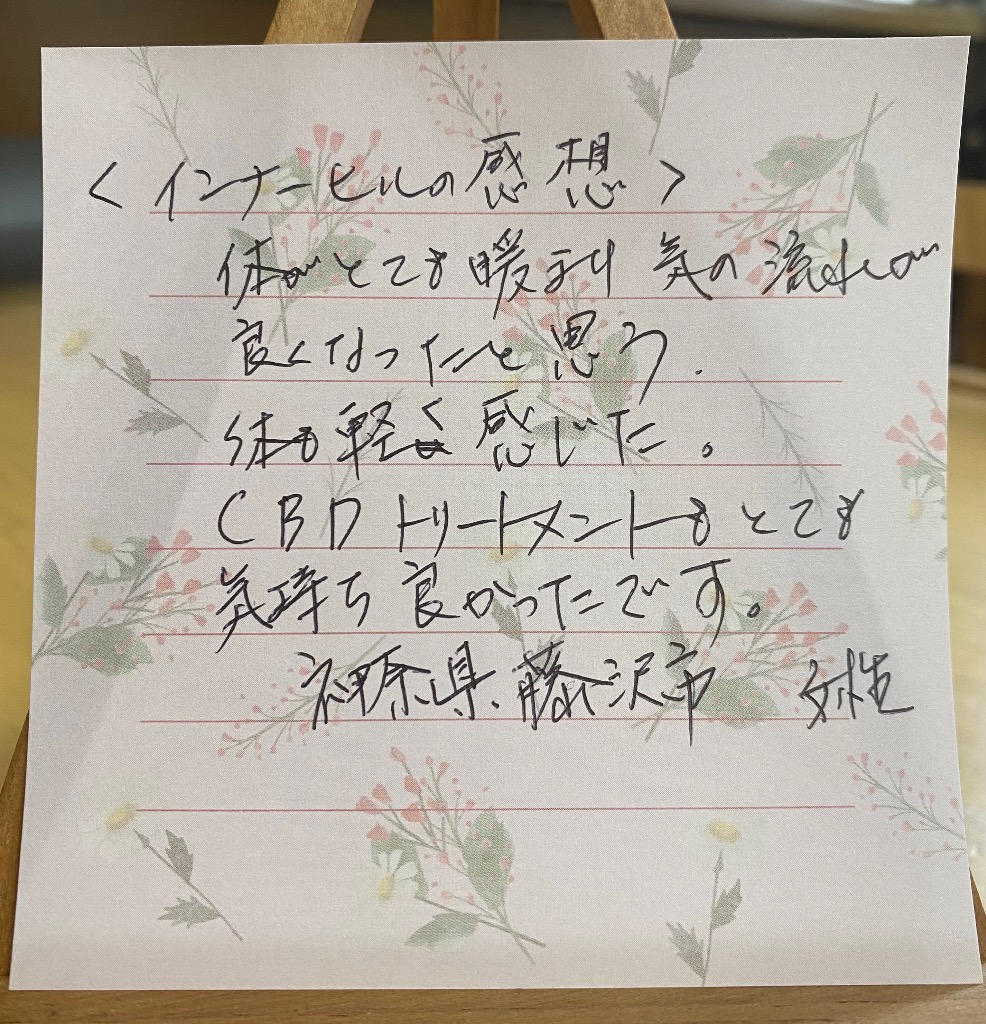 <インナーヒルの感想>
体がとても暖まり 気の流れが
良くなったと思う.
体も軽く感じた。
CBDトリートメントもとても
気持ち良かったです。
神奈川県.藤沢市 女性